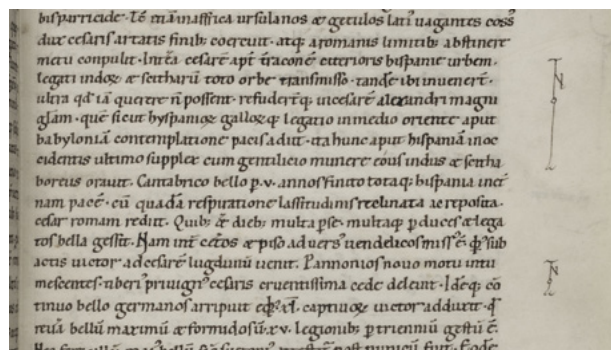 bisparticide · Tē mā inaffrica ursulanos & getulos lati uagantes coss
dux cesaris artatis finib; coercuit · atq; aromanis limitib; abstinere
metu conpulit · Intēa cesarē apt̄ traconē citerioris hispanie urbem ·
legati indoꝝ & scitharū toto orbe transmisso · tandē ibi inuenert̄ ·
ultra qd̄ iā querere n̄ possent · refudert̄q; incesarē alexandri magni
glam̄ · quē sicut byspanioꝝ galloꝝq; legatio inmedio oriente aput
babyloniā contemplatione pacis adiit · ita hunc aput hispaniā in oc
cidentis ultimo supplex cum gentilicio munere eous indus & scitha
boreus orauit · Cantabrico bello p · v · annos finito totaq; hispania inet̄
nam pacē · cū quadā respiratione lassitudinis reclinata ac reposita ·
cesar romam rediit · Quib; & dieb; multa p se · multaq; p duces & lega
tos bella gessit · Nam int̄ cet̄os & piso aduers uendelicos miss' ē · q̄ sub
actis uictor ad cesarē lugdunū uenit · Pannonios nouo motu intu
mescentes · tiberi' priuign' cesaris cruentissima cede deleuit · Idēq; con
tinuo bello germanos arripuit eq̄b; xl · captiuoꝝ uictor adduxit · q̄
reuā bellū maximū & formidosū · xv · legionib; p trienniū gestū ē ·